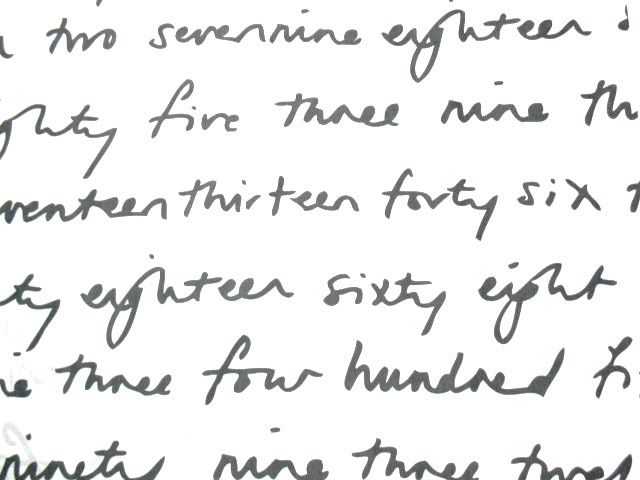 two seven nine eighteen
ghty five three nine th
venteen thirteen forty six t
ty eighteen sixty eight
ne three four hundred fi
ninety nine three twel